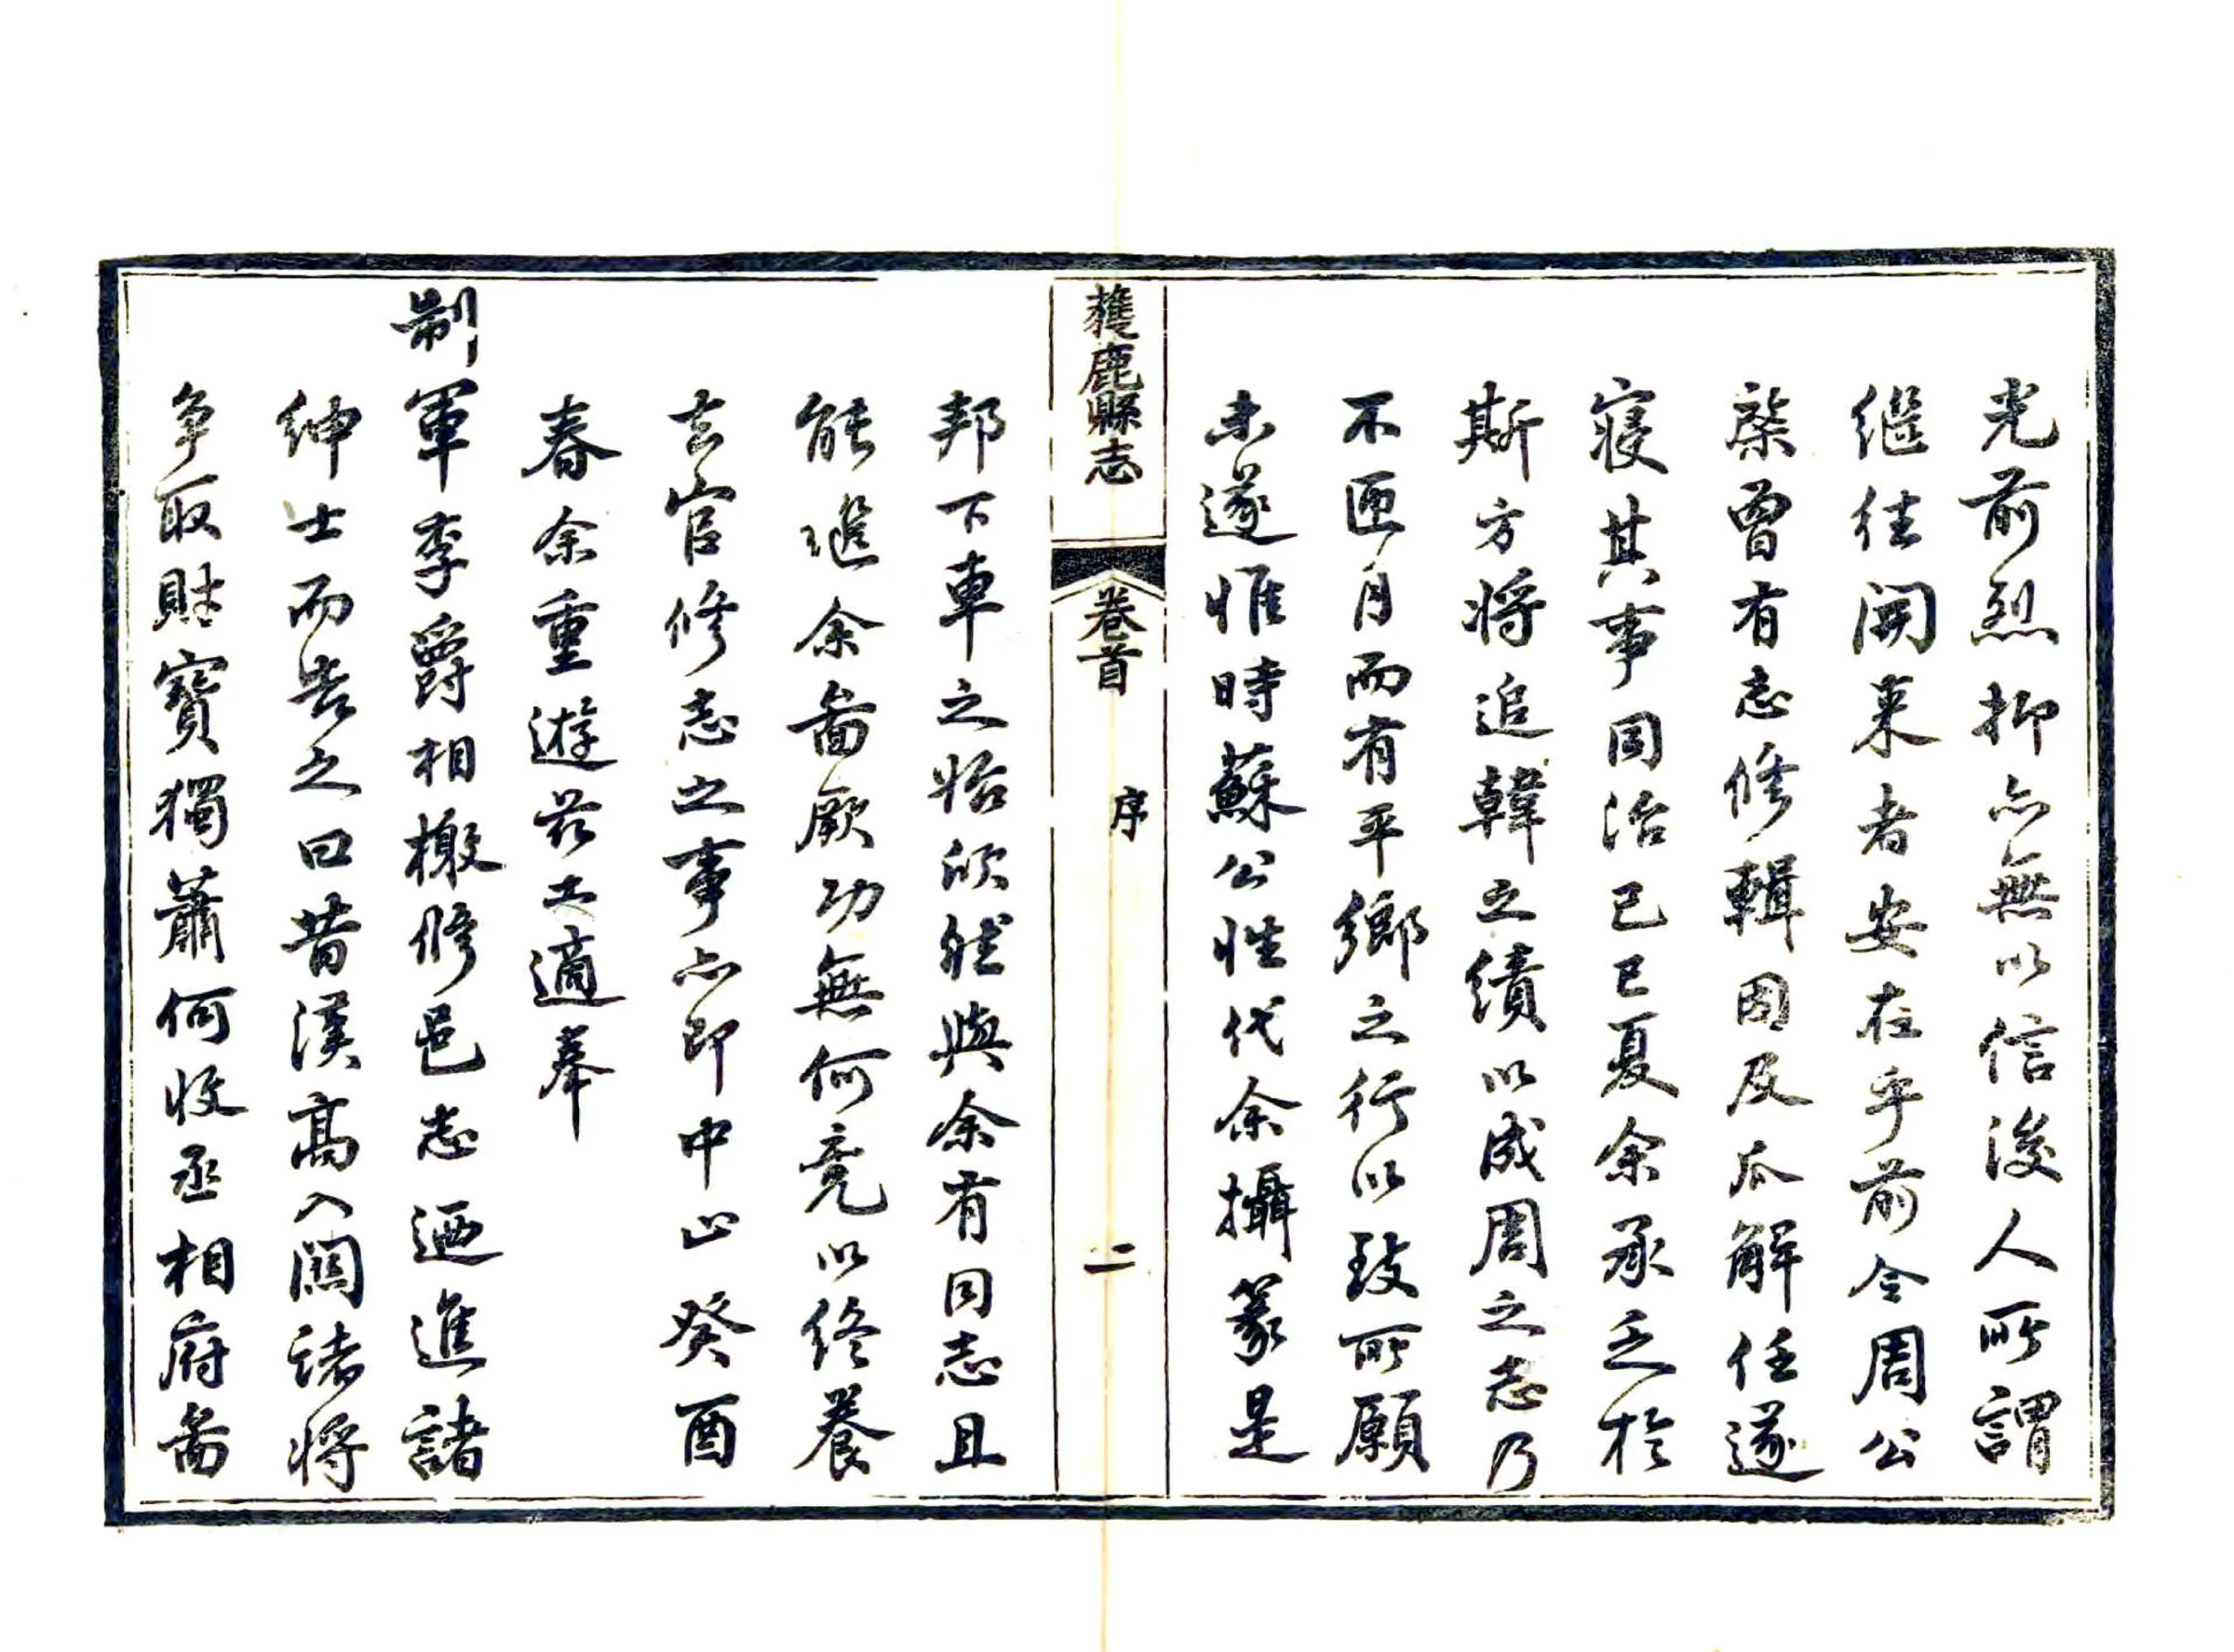 光前烈抑亦無以信後人所謂
繼往開來者安在乎前令周公
棨曾有志修輯因及瓜解任遂
寢其事同治己巳夏余承乏於
斯方將追韓之績以成周之志乃
不匝月而有平鄉之行以致所願
未遂惟時蘇公性代余攝篆是
獲鹿縣志
卷首
序
二
邦下車之始欣然與余有同志且
能進余啚厥功無何竟以終養
去官修志之事亦即中止癸酉
春余重遊茲土適奉
制軍李爵相檄修邑志迺進諸
紳士而告之曰昔漢高入關諸將
爭取財寶獨蕭何收丞相府啚